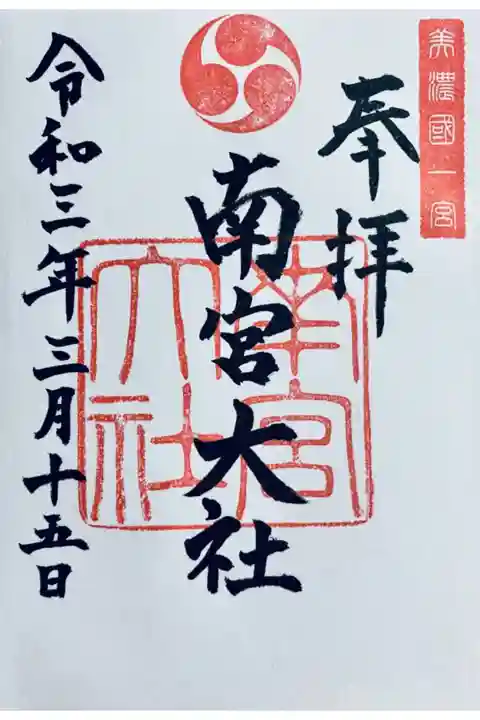 美濃國一宮
奉拝
南宮大社
南宮大社
令和三年三月十五日